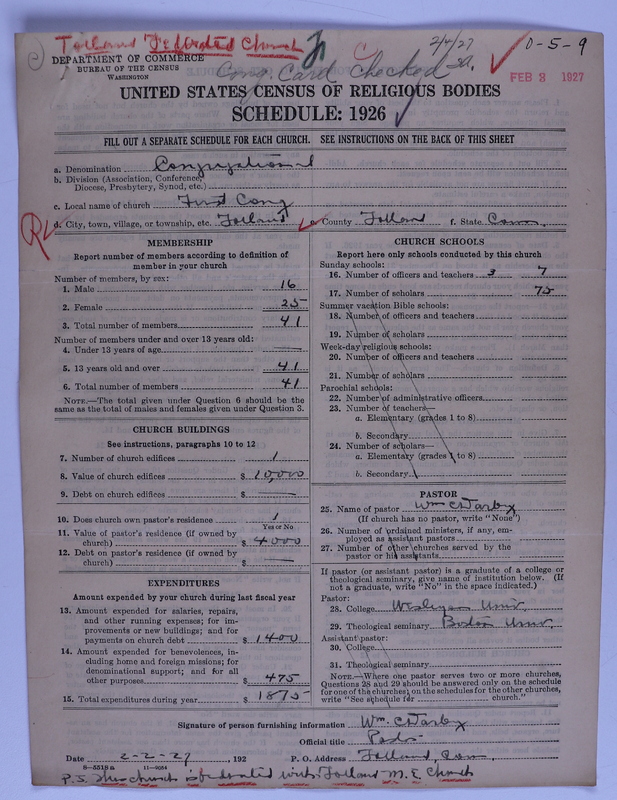 Tolland Federated Church
2/4/27
0-5-9
DEPARTMENT OF COMMERCE
BUREAU OF THE CENSUS
WASHINGTON
Cong Card checked
FEB 3 1927
UNITED STATES CENSUS OF RELIGIOUS BODIES
SCHEDULE: 1926
FILL OUT A SEPARATE SCHEDULE FOR EACH CHURCH. SEE INSTRUCTIONS ON THE BACK OF THIS SHEET
a. Denomination Congregational
b. Division (Association, Conference, Diocese, Presbytery, Synod, etc.)
c. Local name of church First Cong
d. City, town, village, or township, etc. Tolland e. County Tolland f. State Conn.
MEMBERSHIP
Report number of members according to definition of
member in your church
Number of members, by sex:
1. Male 16
2. Female 25
3. Total number of members 41
Number of members under and over 13 years old:
4. Under 13 years of age
5. 13 years old and over 41
6. Total number of members 41
NOTE.—The total given under Question 6 should be
same as the total of males and females given under Question 3.
CHURCH BUILDINGS
See instructions, paragraphs 10 to 12
7. Number of church edifices 1
8. Value of church edifices $ 10,000
9. Debt on church edifices $
10. Does church own pastor's residence 1
Yes or No
11. Value of pastor's residence (if owned by
church) $ 4000
12. Debt on pastor's residence (if owned by
church) $
EXPENDITURES
Amount expended by your church during last fiscal year
13. Amount expended for salaries, repairs,
and other running expenses; for im-
provements or new buildings; and for
payments on church debt $ 1400
14. Amount expended for benevolences, in-
cluding home and foreign missions; for
denominational support; and for all
other purposes $ 475
15. Total expenditures during year $ 1875
CHURCH SCHOOLS
Report here only schools conducted by this church
Sunday schools:
16. Number of officers and teachers 3 7
17. Number of scholars 75
Summer vacation Bible schools:
18. Number of officers and teachers
19. Number of scholars
Week-day religious schools:
20. Number of officers and teachers
21. Number of scholars
Parochial schools:
22. Number of administrative officers
23. Number of teachers—
a. Elementary (grades 1 to 8)
b. Secondary
24. Number of scholars—
a. Elementary (grades 1 to 8)
b. Secondary
PASTOR
25. Name of pastor Wm C Darby
(If church has no pastor, write "None")
26. Number of ordained ministers, if any, em-
ployed as assistant pastors
27. Number of other churches served by the
pastor or his assistants
If pastor (or assistant pastor) is a graduate of a college or
theological seminary, give name of institution below. (If
not a graduate, write "No" in the space indicated.)
Pastor:
28. College Wesleyan Univ
29. Theological seminary Boston Univ.
Assistant pastor:
30. College
31. Theological seminary
NOTE.—Where one pastor serves two or more churches,
Questions 28 and 29 should be answered only on the schedule
for one of the churches; on the schedules for the other churches,
write "See schedule for church."
Signature of person furnishing information Wm. C Darby
Official title Pastor
Date 2-2-27, 192 P. O. Address Tolland, Conn.
8-5518a 11-9084
P.S. This church is federated with Tolland M. E. Church